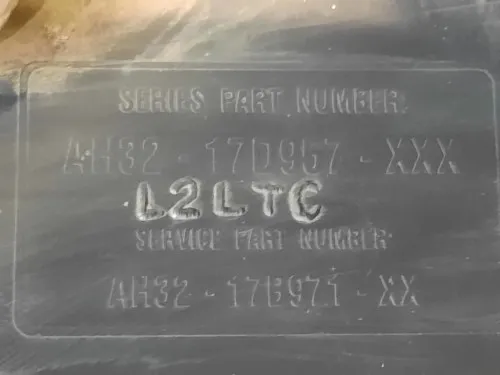 SERIES PART NUMBER:
AH32 - 17D967 - XXX
L2LTC
SERVICE PART NUMBER:
AH32 - 17B971 - XX